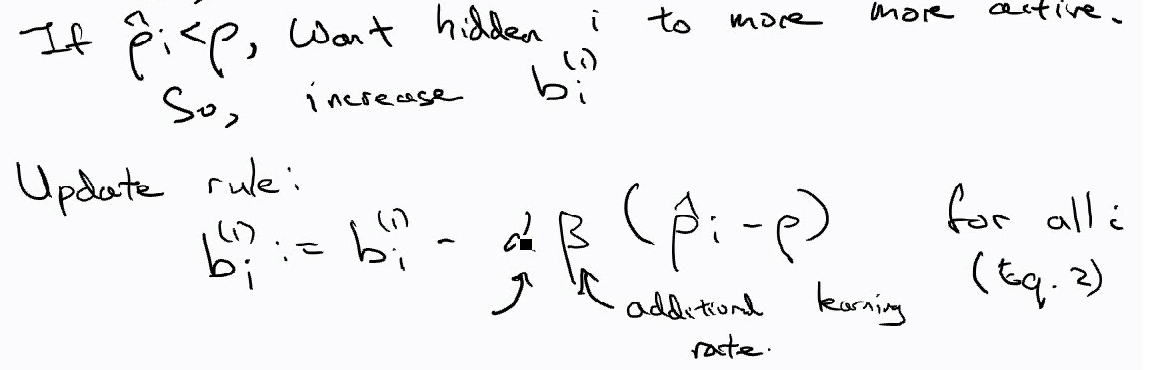 If ρ̂ᵢ<ρ, want hidden i to more more active.
So, increase bᵢ⁽¹⁾
Update rule:
bᵢ⁽¹⁾ := bᵢ⁽¹⁾ - α β (ρ̂ᵢ-ρ) for all i
(Eq. 2)
additional learning
rate.